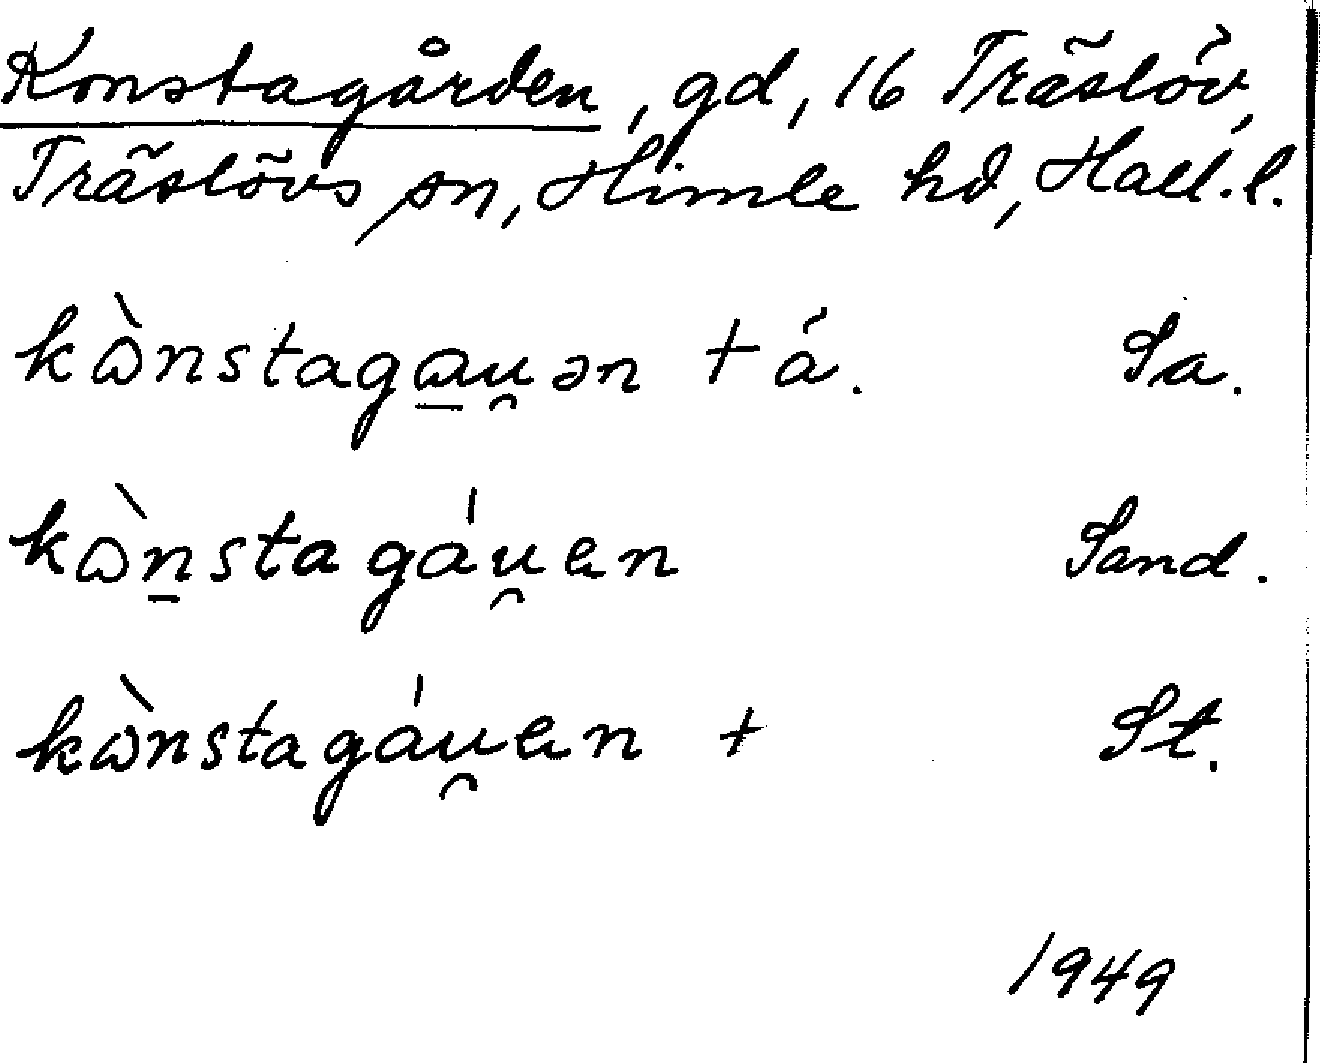 Konstagården, gd, 16 Träslöv,
Träslövs sn, Himle hd, Hall. l.
kὼnstagꞷu̯ən + á. Sa.
kὼn̠stagáu̯en Sand.
kὼnstagáu̯en + St.
1949